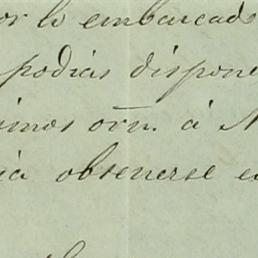 or lo embarcado
podias dispone
imos orn. á N
ia obtenerse e